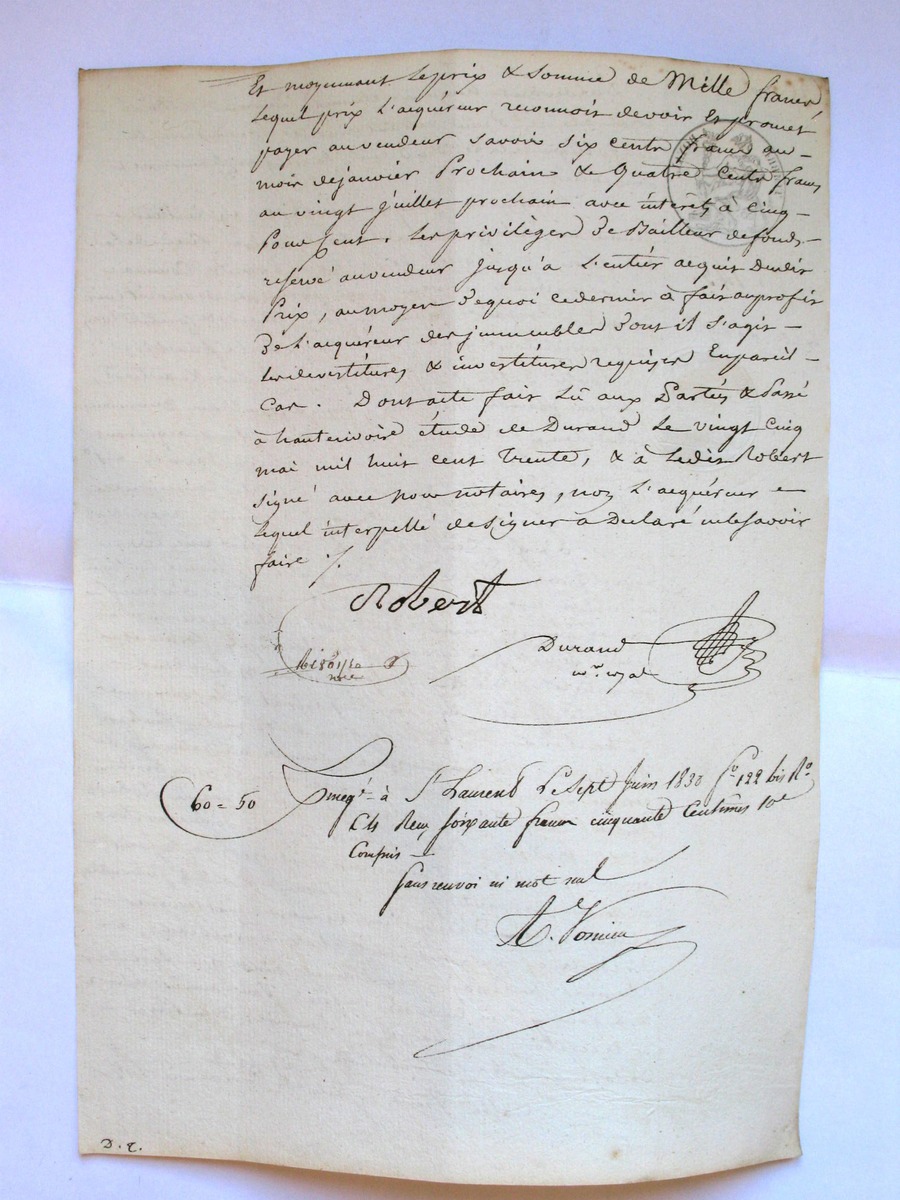 Et moyennant le prix & somme de Mille francs
Lequel prix L'acquéreur reconnoit devoir Et promet
payer au vendeur savoir six cents francs au
mois de janvier Prochain & Quatre Cents francs
au vingt juillet prochain avec interets à cinq
Pour Cent. Les privilèges de Bailleur de fonds
reservé au vendeur jusqu'à L'entier acquit dudit
Prix, au moyen de quoi ce dernier à fait au profit
De L'acquéreur des immeubles dont il s'agit
Les devestitures & investitures requises En pareil
Cas. Dont acte fait Lû aux Parties & Passé
à hauterivoire étude de Durand Le vingt Cinq
mai mil huit cent Trente, & à Ledit Robert
signé avec nous notaires, non L'acquéreur
Lequel interpellé de signer a Déclaré ne le savoir
faire ./.
Robert
Durand
60 = 50
à St Laurent Le Sept Juin 1830 fo. 122 bis Ro.
Cts Reçu soixante francs cinquante Centimes 10e
Compris
Sans renvoi ni mot nul
D. T.